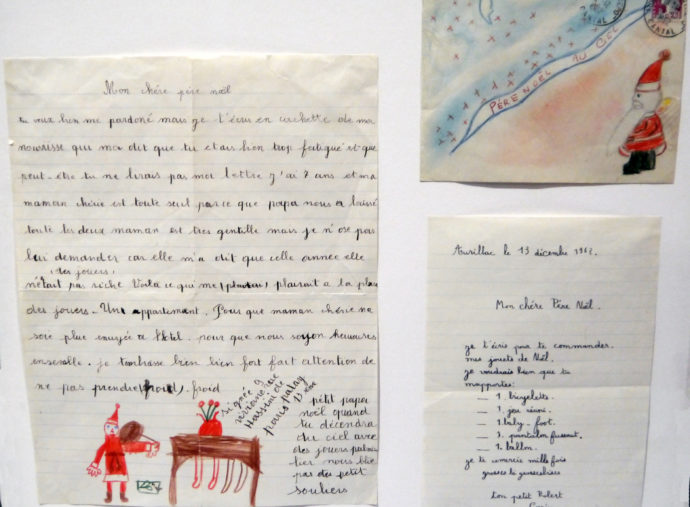 Mon chére père noël
tu veux bien me pardoné mais je t'écris en cachette de ma
nourisse qui ma dit que tu etais bien trop fatigué et que
peut-être tu ne lirais pas mot lettre j'ai 7 ans et ma
maman chérie est toute seul parce que papa nous a laissé
toute les deux maman est tres gentille mais je n'ose pas
lui demander car elle m'a dit que cette année elle
(des jouers)
n'était pas riche Voila ce qui me plairait a la place
des jouers. Un appartement. Pour que maman chérie ne
soie plue
a l'Hotel. pour que nous soyon heureuses
ensemble. je t'embrasse bien bien fort fait attention de
ne pas prendre (froid) froid
signée
Viviane
paris
pétit papa
noël quand
tu décendra
du ciel avec
des jouers
nous
pas des petit
souliers
PÈRE NOËL AU CIEL
CANTAL
Aurillac le 13 décembre 1962.
Mon chére Père Noël.
je t'écris pour te commander
mes jouets de Noël.
je voudrais bien que tu
m'apportes:
— 1. bicyclette.
— 1. jeu réuni.
— 1. baby-foot.
— 1. pantalon fuseaut.
— 1. ballon.
je te remercie mille fois
Ton petit Robert